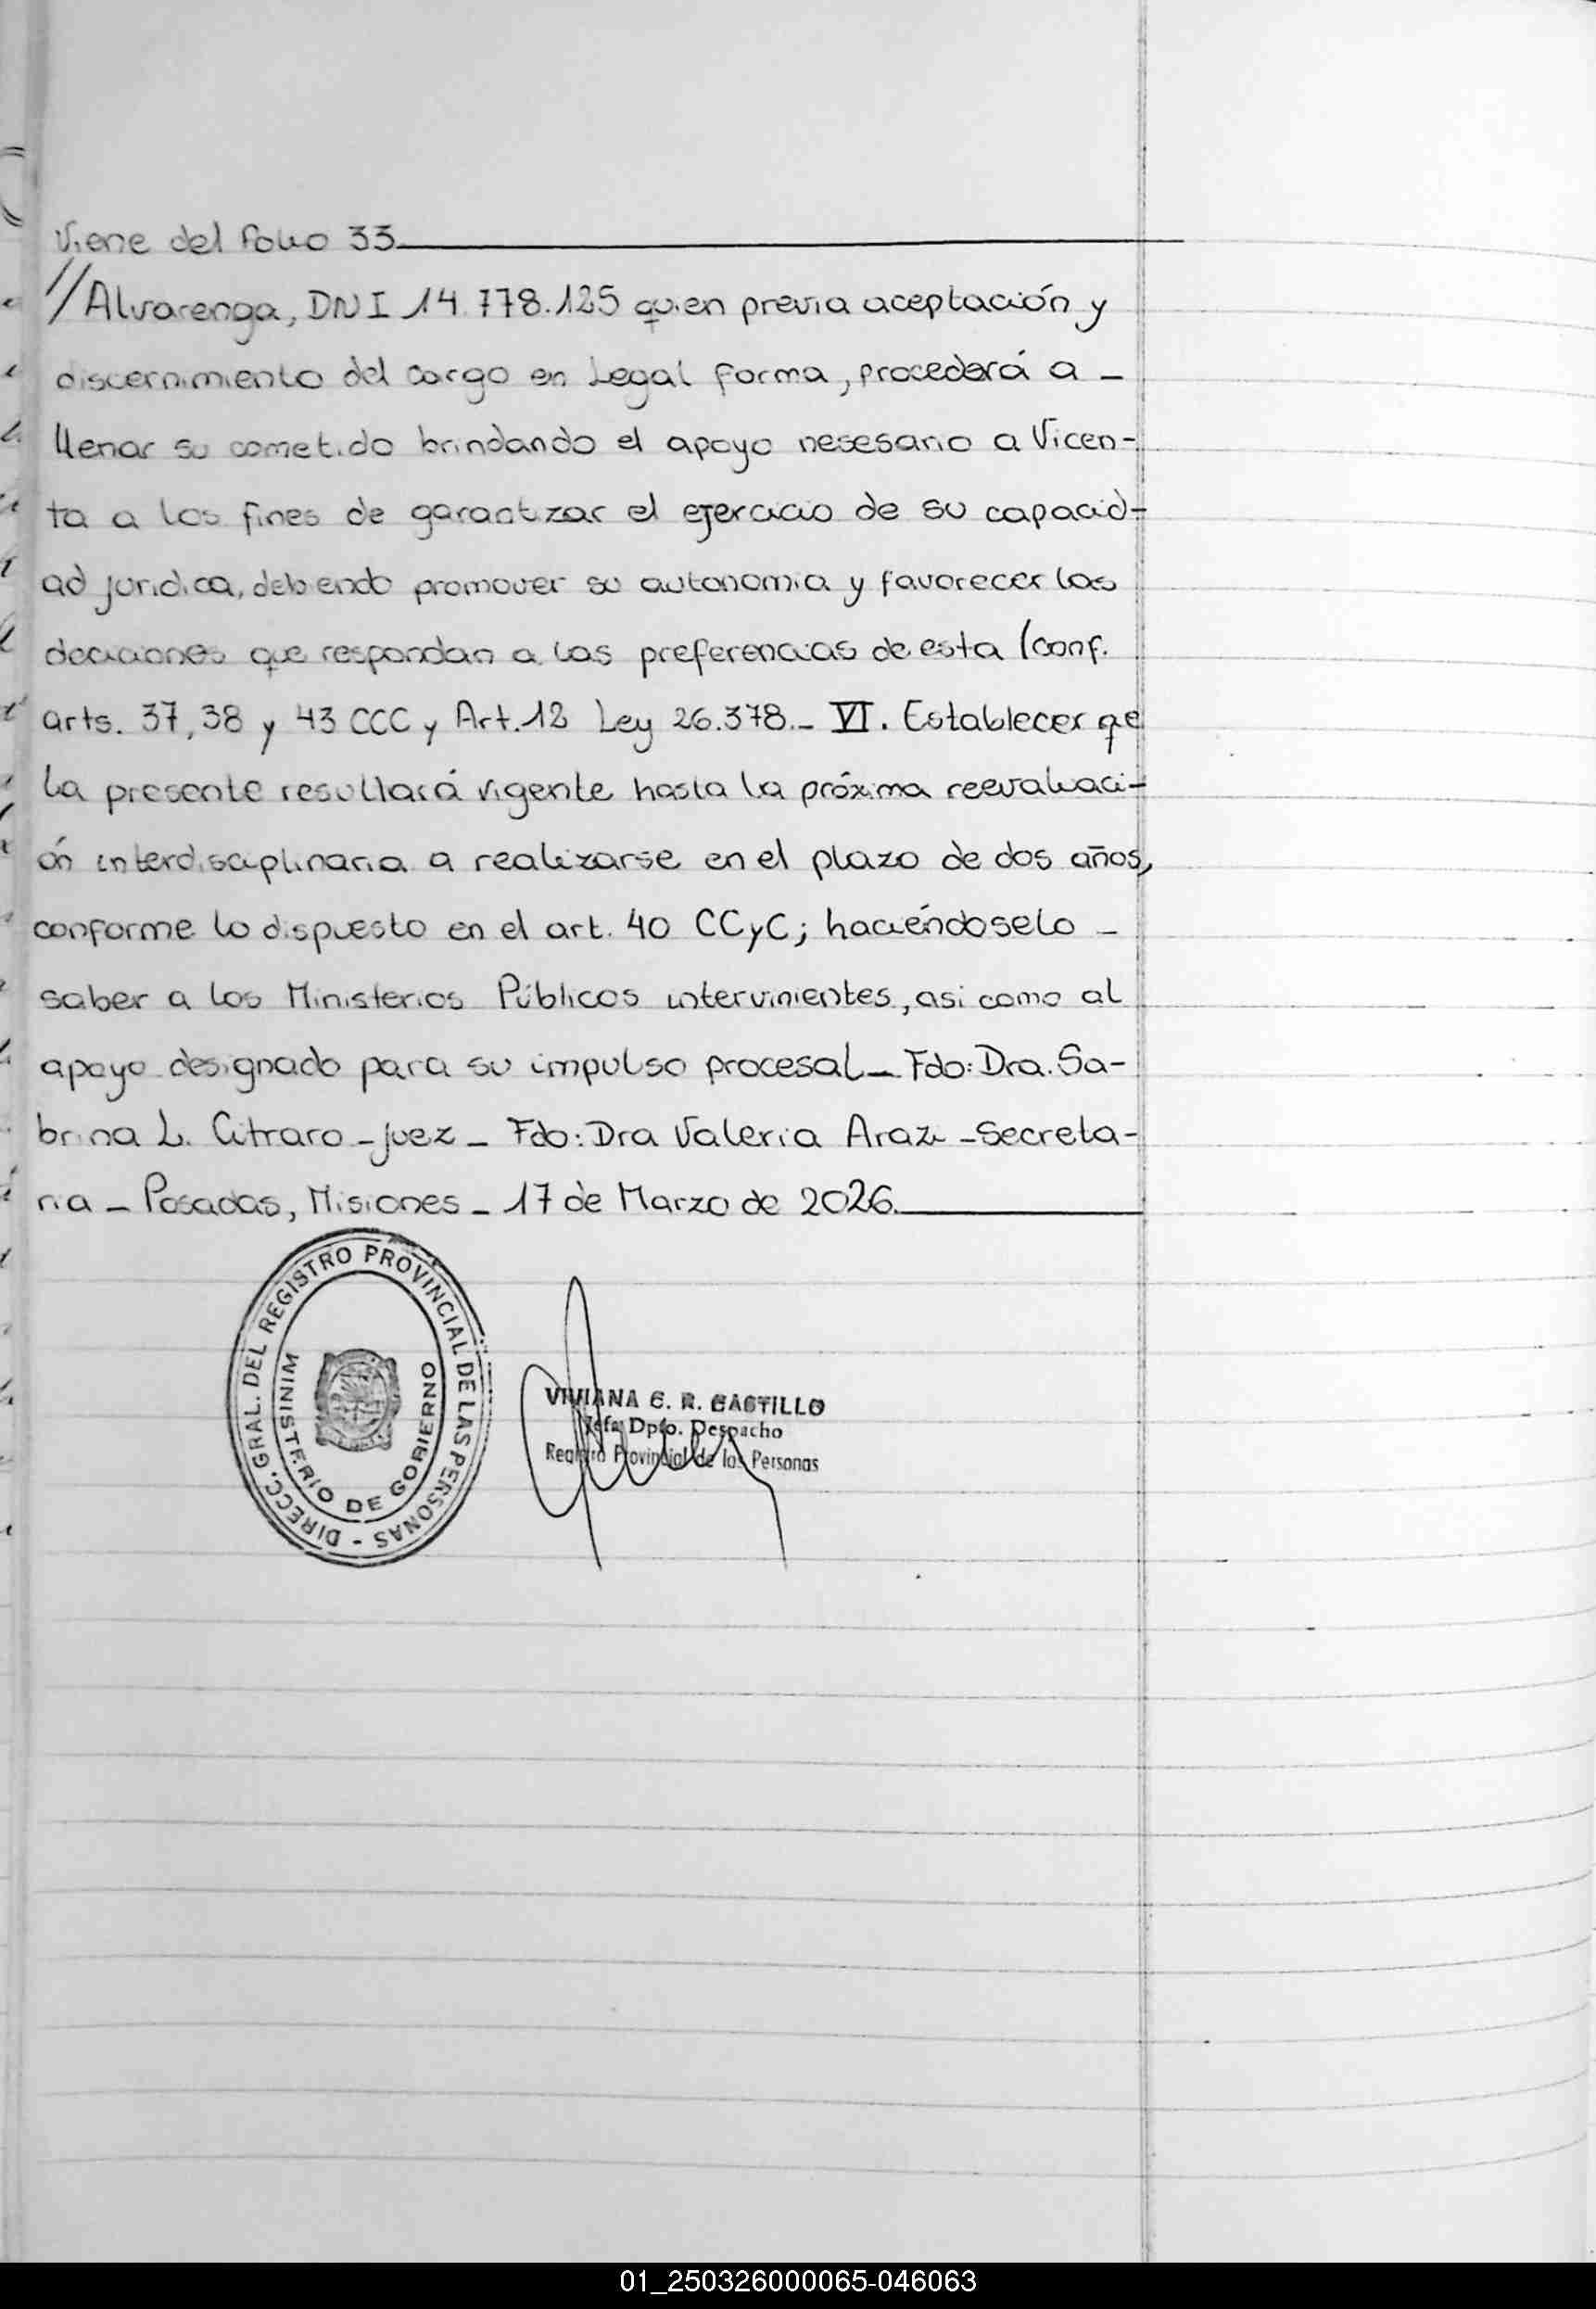 Viene del folio 33
//Alvarenga, DNI 14.778.125 quien previa aceptación y
discernimiento del cargo en Legal forma, procederá a _
llenar su cometido brindando el apoyo nesesario a Vicen-
ta a los fines de garantizar el ejercicio de su capacid-
ad juridica, debiendo promover su autonomia y favorecer las
deciciones que respondan a las preferencias de esta (conf.
arts. 37, 38 y 43 CCC y Art. 12 Ley 26.378._ VI. Establecer qe
la presente resultará vigente hasta la próxima reevaluaci-
ón interdisciplinaria a realizarse en el plazo de dos años,
conforme lo dispuesto en el art. 40 CCyC; haciéndoselo _
saber a los Ministerios Públicos intervinientes, asi como al
apoyo designado para su impulso procesal _ Fdo: Dra. Sa-
brina L. Citraro _ juez _ Fdo: Dra Valeria Arazi _ Secreta-
ria _ Posadas, Misiones _ 17 de Marzo de 2026.
DIRECC. GRAL. DEL REGISTRO PROVINCIAL DE LAS PERSONAS -
MINISTERIO DE GOBIERNO
VIVIANA C. R. CASTILLO
Jefa Dpto. Despacho
Registro Provincial de las Personas
01_250326000065-046063